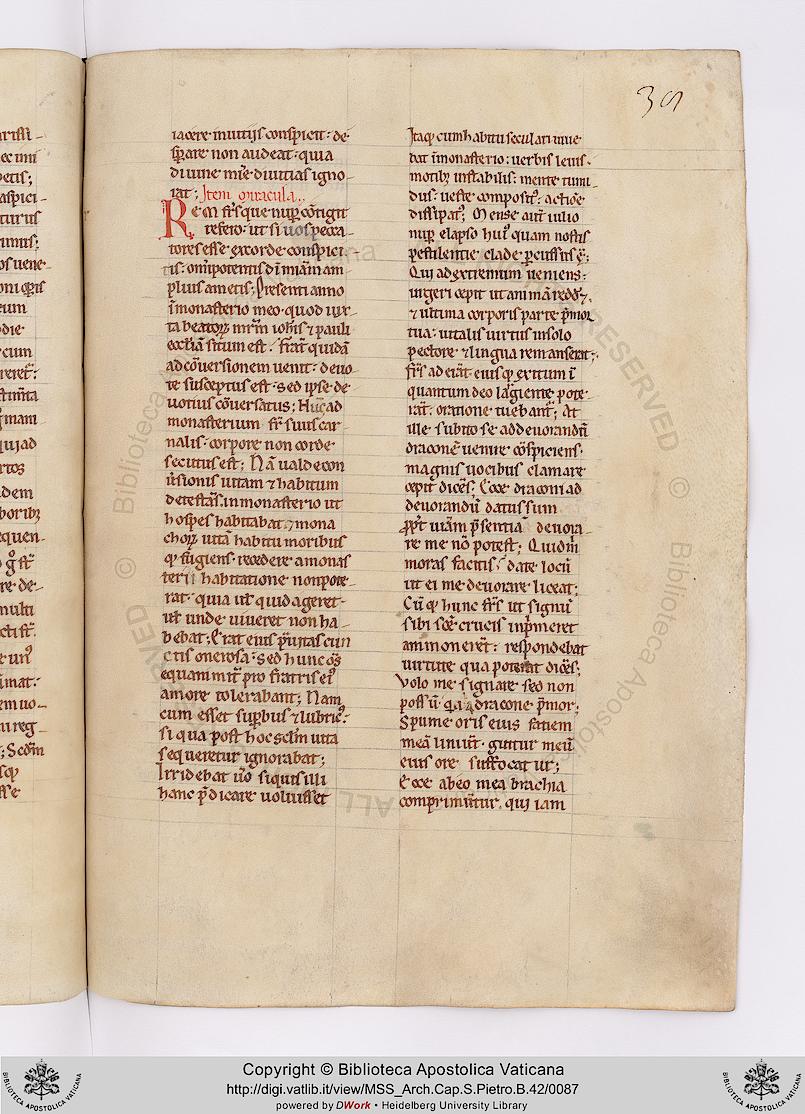 39
iacere in uitijs conspicit: de
sperare non audeat· quia
diuine mīe diuitias igno
rat; Item miracula..
REm frs que nup cōtigit
refero: ut si uos pecca
tores esse ex corde conspici
tis: omīpotentis dī miām am
plius ametis; Presenti anno
in monasterio meo· quod iux
ta beatoꝝ mrm̄ ioħis ⁊ pauli
eccłiam situm est: frat̄ quidā
ad cōuersionem uenit: deuo
te susceptus est· sed ipse de
uotius cōuersatus; Hūc ad
monasterium fr̄ suus car
nalis· corpore non corde
secutus est; Nā ualde con
uersionis uitam ⁊ habitum
detestās· in monasterio ut
hospes habitabat· ⁊ mona
choꝝ uitā habitu moribus
qꝫ fugiens· recedere a monas
terii habitatione non pote
rat· quia ut̄ quid ageret·
ut̄ unde uiueret non ha
bebat; Erat eius prauitas cun
ctis onerosa· sed hunc om̄s
equanimit̄ pro fratris ei᾽
amore tolerabant; Nam
cum esset supbus ⁊ lubric᾽:
si qua post hoc sclm̄ uita
sequeretur ignorabat;
Irridebat u̅o si quis illi
hanc p̄dicare uoluisset
Itaqꝫ cum habitu seculari uiue
bat in monasterio: uerbis leuis·
motibꝫ instabilis: mente tumi
dus: ueste composit᾽: actiōe
dissipat᾽; Mense aut̄ iulio
nup elapso hui᾽ quam nostis
pestilentie clade pcussus ē:
Qui ad extremum ueniens:
urgeri cepit ut animā redd⁊·
⁊ ultima corporis parte p̄mor
tua: uitalis uirtus in solo
pectore ⁊ lingua remanserat;
frs aderāt· eiusqꝫ exitum ī
quantum deo largiente pote
rāt: oratione tuebant̄; At
ille subito se ad deuorandū
draconē uenire cōspiciens·
magnis uocibus clamare
cepit dicēs; Ecce draconi ad
deuorandū datus sum
ꝓpt̄ uram p̄sentiā deuora
re me nō potest; Quid m̄
moras facitis; date locū
ut ei me deuorare liceat;
Cū qꝫ hunc frs ut signū
sibi sce crucis inp̄meret
ammonerēt: respondebat
uirtute qua poterat dicēs;
Volo me signare sed non
possū· quia a dracone p̄mor;
Spume oris eius faciem
meā liniūt· guttur meū
eius ore suffocatur;
Ecce ab eo mea brachia
comprimūtur· qui iam
Copyright © Biblioteca Apostolica Vaticana
http://digi.vatlib.it/view/MSS_Arch.Cap.S.Pietro.B.42/0087
powered by DWork • Heidelberg University Library